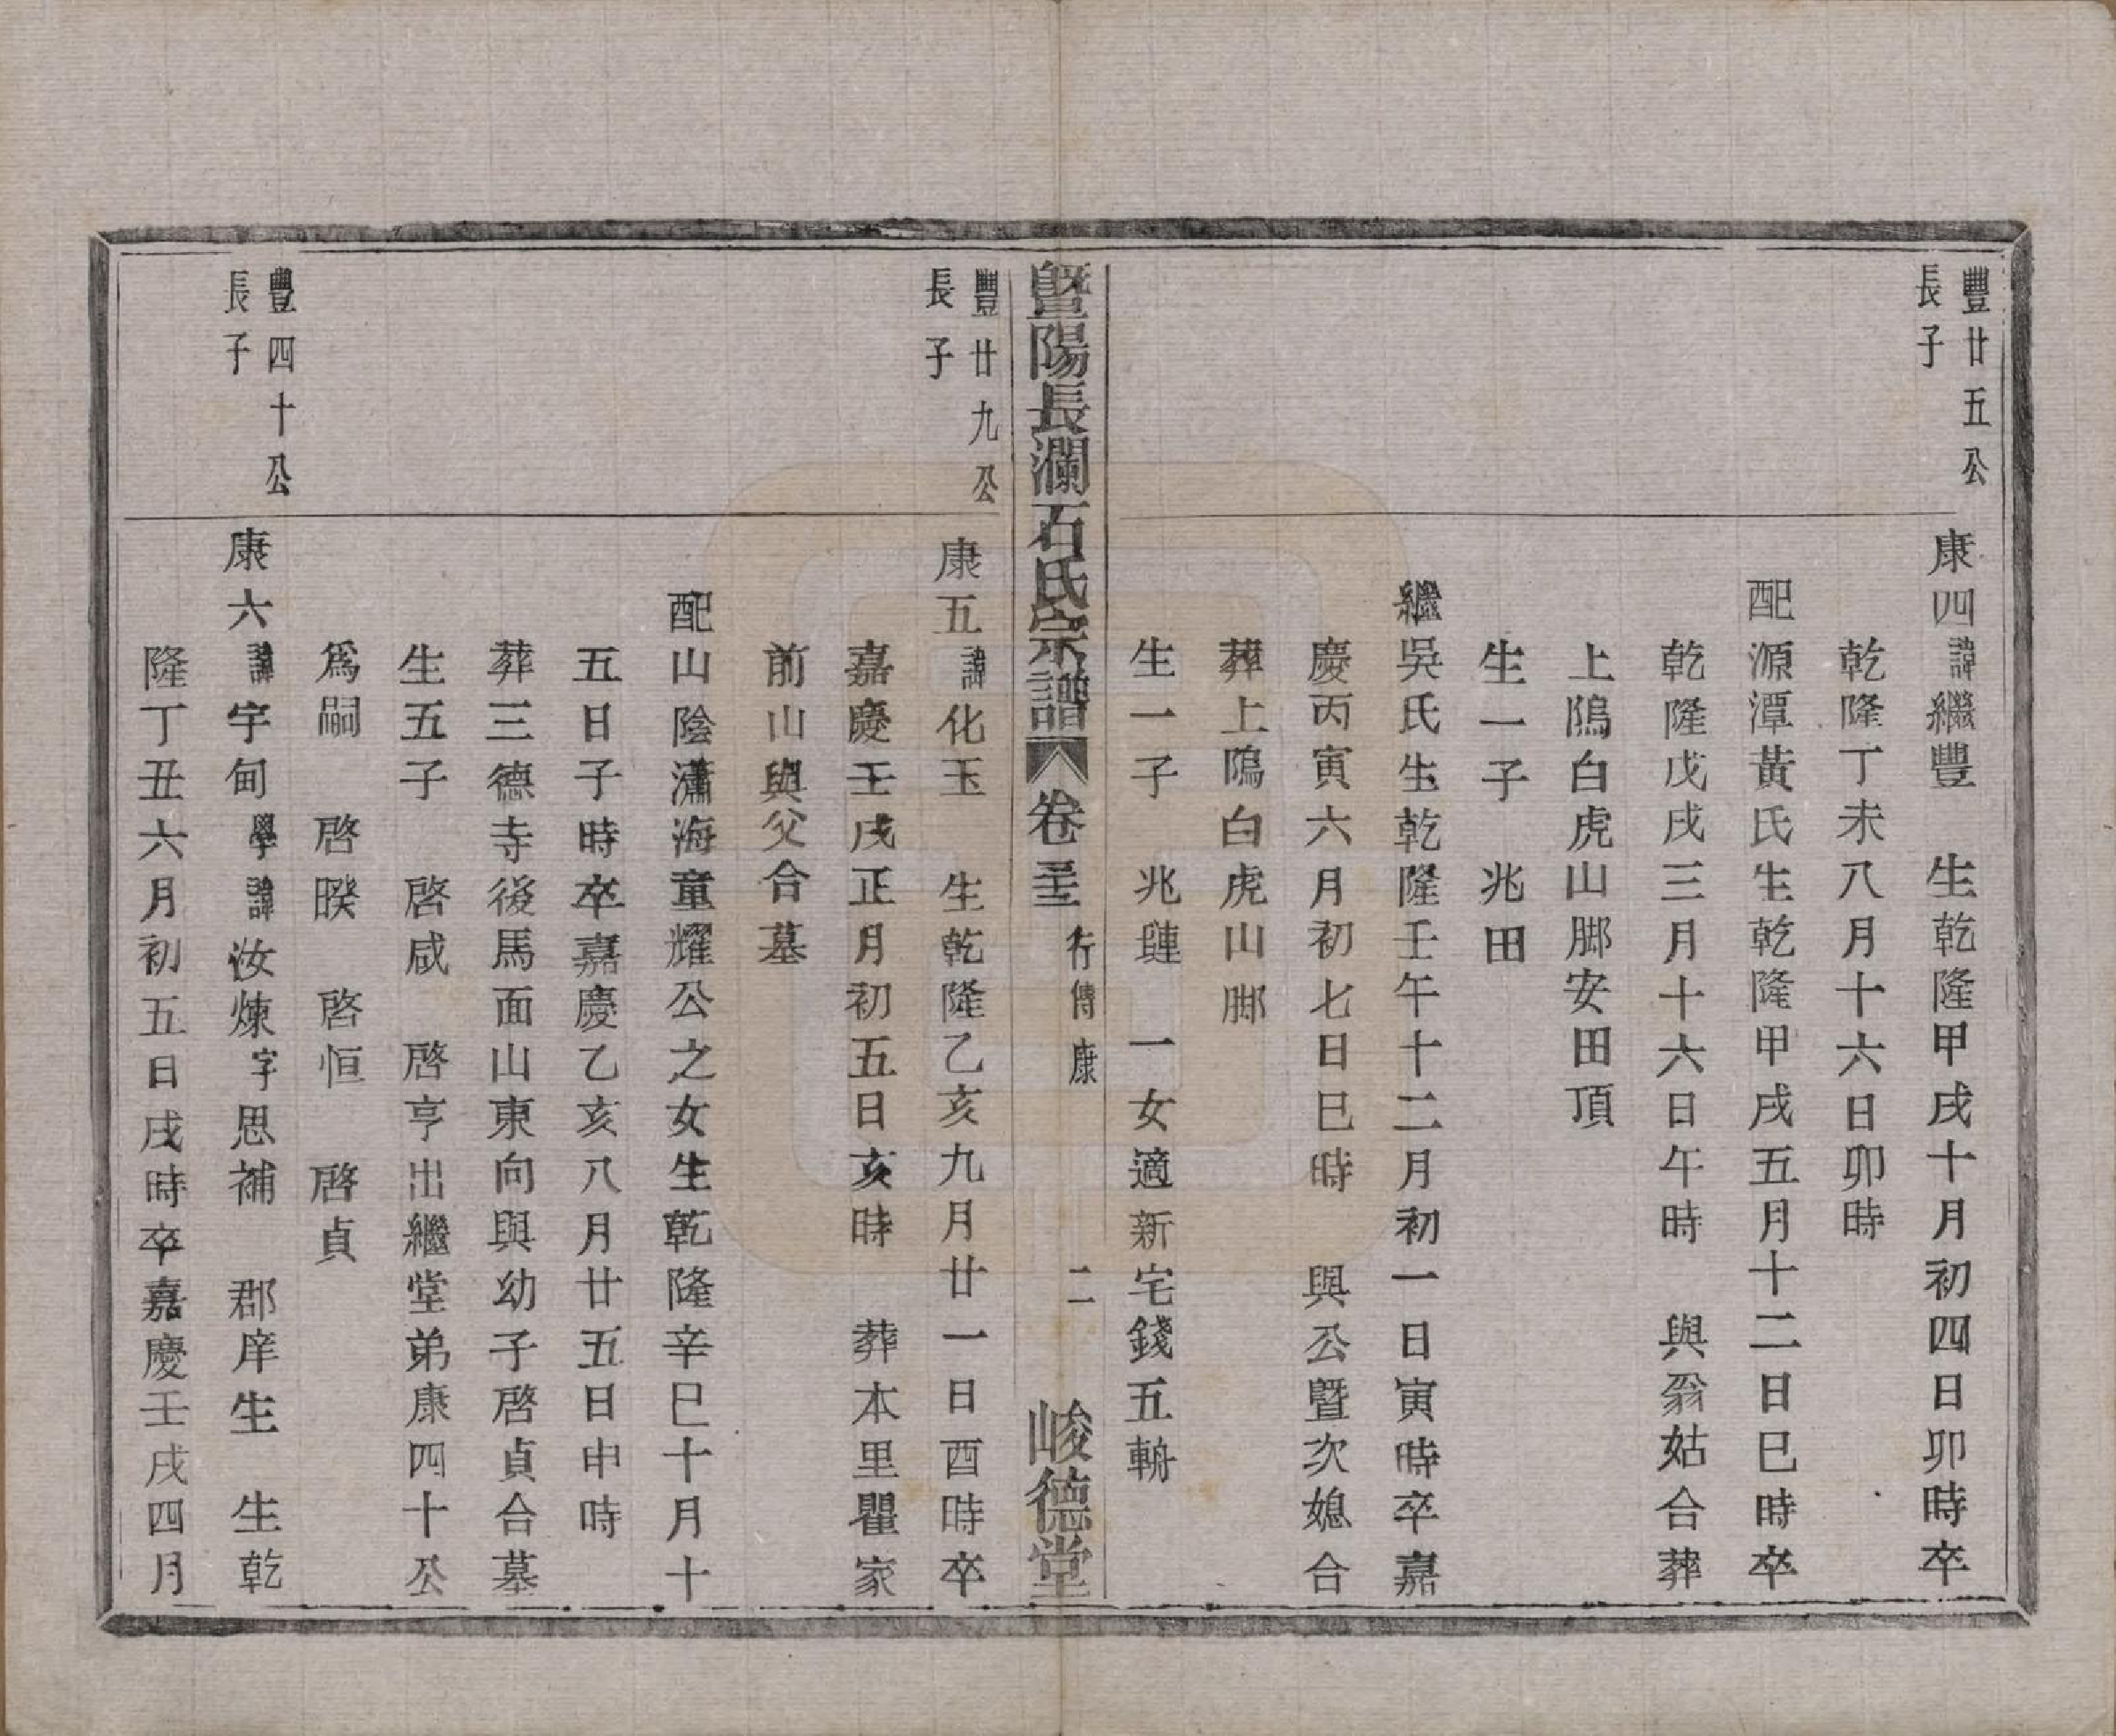 豐廿五公
長子
康四諱繼豐　生乾隆甲戌十月初四日卯時卒
乾隆丁未八月十六日卯時
配源潭黃氏生乾隆甲戌五月十二日巳時卒
乾隆戊戌三月十六日午時　與翁姑合葬
上隖白虎山脚安田頂
生一子　兆田
繼吳氏生乾隆壬午十二月初一日寅時卒嘉
慶丙寅六月初七日巳時　與公暨次媳合
葬上隖白虎山脚
生一子　兆璉　一女適新宅錢五輈
暨陽長瀾石氏宗譜　卷三十三　行傳康　二　峻德堂
豐廿九公
長子
康五諱化玉　生乾隆乙亥九月廿一日酉時卒
嘉慶壬戌正月初五日亥時　葬本里瞿家
前山與父合墓
配山陰瀟海童耀公之女生乾隆辛巳十月十
五日子時卒嘉慶乙亥八月廿五日申時
葬三德寺後馬面山東向與幼子啓貞合墓
生五子　啓咸　啓亨出繼堂弟康四十公
爲嗣　啓暌　啓恒　啓貞
豐四十公
長子
康六諱宇甸學諱汝煉字思補　郡庠生　生乾
隆丁丑六月初五日戌時卒嘉慶壬戌四月